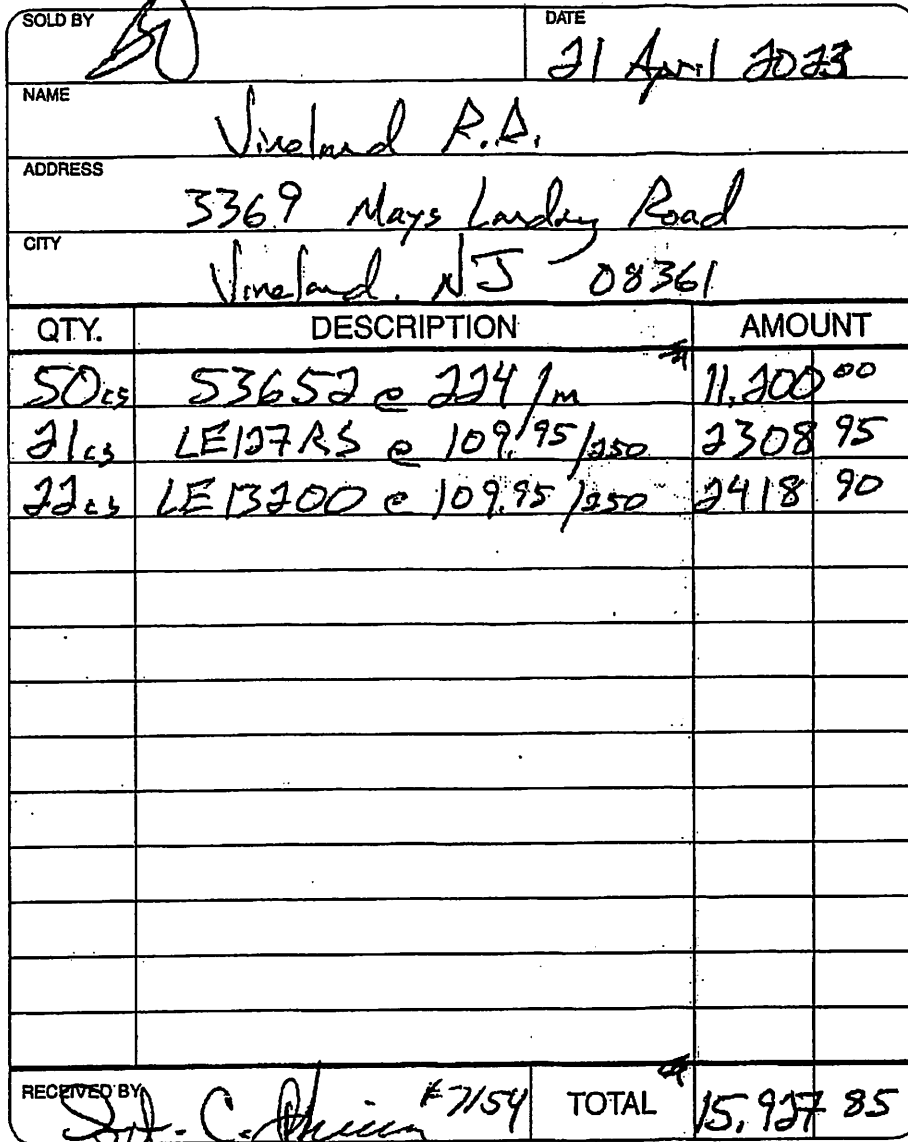 SOLD BY DATE
21 April 2023
NAME
Vineland P.D.
ADDRESS
3369 Mays Landing Road
CITY
Vineland, NJ 08361
QTY. DESCRIPTION AMOUNT
50cs 53652 @ 224/m 11,200 00
21cs LE127RS @ 109.95/250 2308 95
22cs LE13200 @ 109.95/250 2418 90
RECEIVED BY Sgt. C. #7154 TOTAL 15,927 85